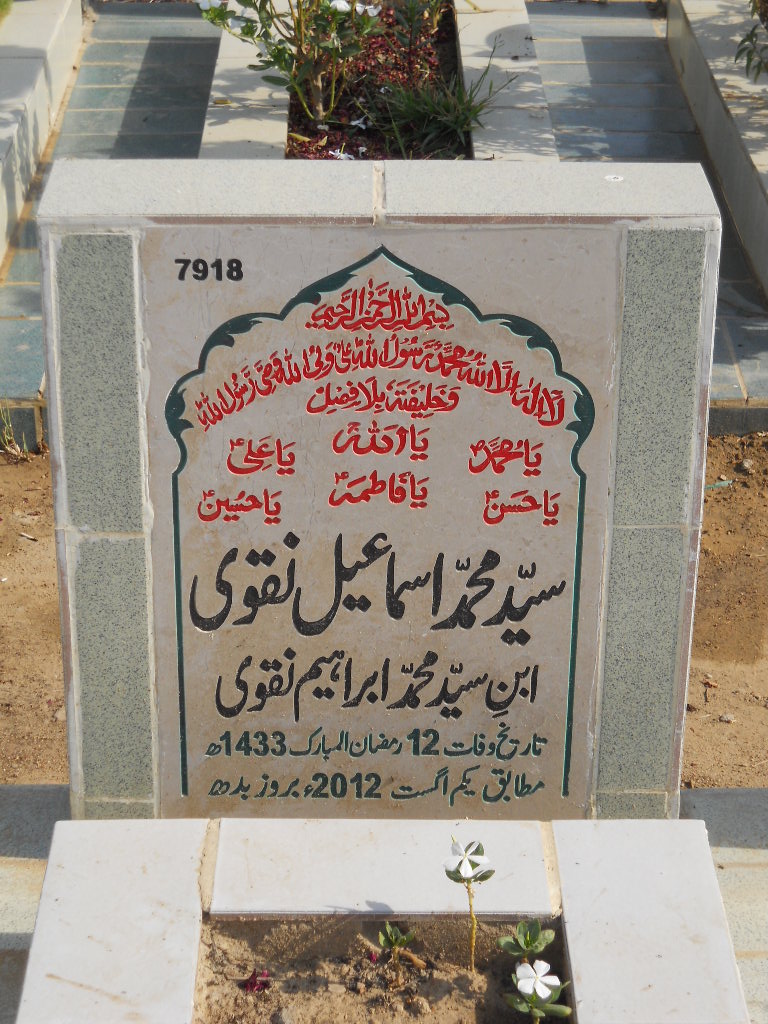 7918
بِسْمِ اللهِ الرَّحْمٰنِ الرَّحِيْمِ
لَا اِلٰهَ اِلَّا اللهُ مُحَمَّدٌ رَّسُوْلُ اللهِ عَلِىٌّ وَلِىُّ اللهِ وَصِىُّ رَسُوْلِ اللهِ
وَخَلِيْفَتَهٗ بِلَا فِصْلٍ
یَا مُحَمَّدؐ یَا اَللّٰهُ یَا عَلِیؑ
یَا حَسَنؑ یَا فَاطِمَہؑ یَا حُسَینؑ
سیّد محمّد اسماعیل نقوی
ابنِ سیّد محمّد ابراہیم نقوی
تاریخ وفات 12 رمضان المبارک 1433ھ
مطابق یکم اگست 2012ء بروز بدھ